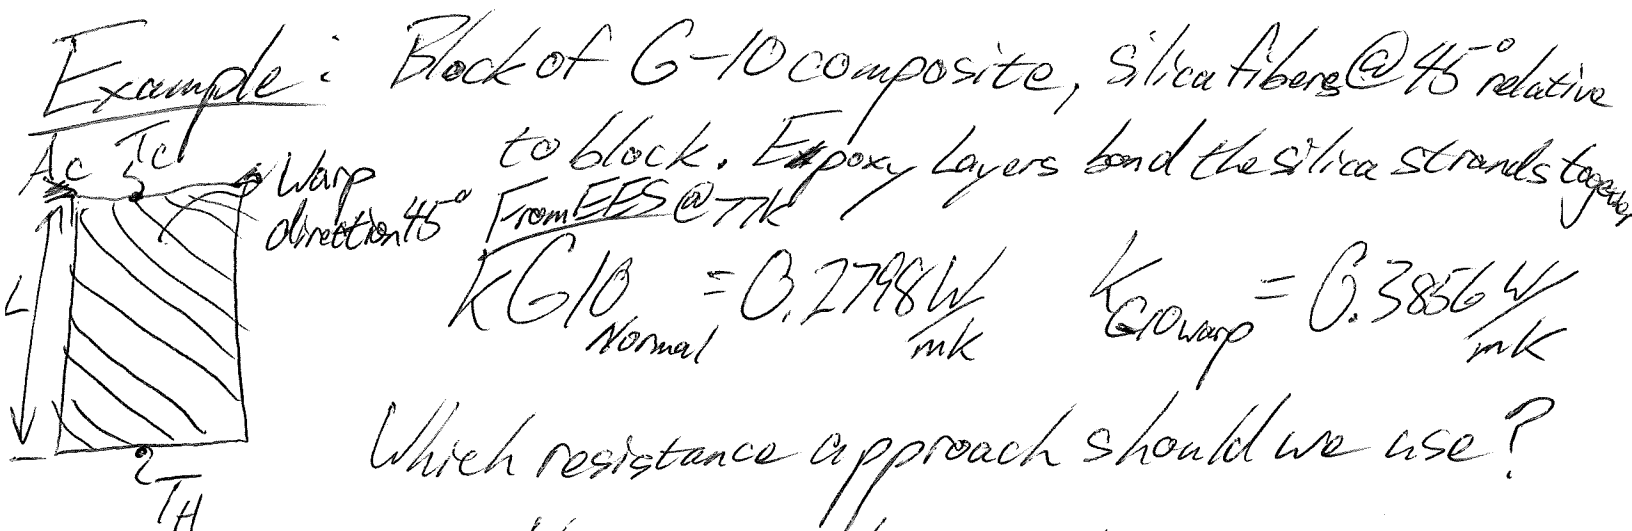 Example: Block of G-10 composite, silica fibers @ 45° relative
to block. Epoxy layers bond the silica strands together
Ac Tc
Warp
direction 45°
From EES @ 77k
L
kG10 Normal = 0.2798 W/mK kG10 warp = 0.3856 W/mK
Which resistance approach should we use?
TH